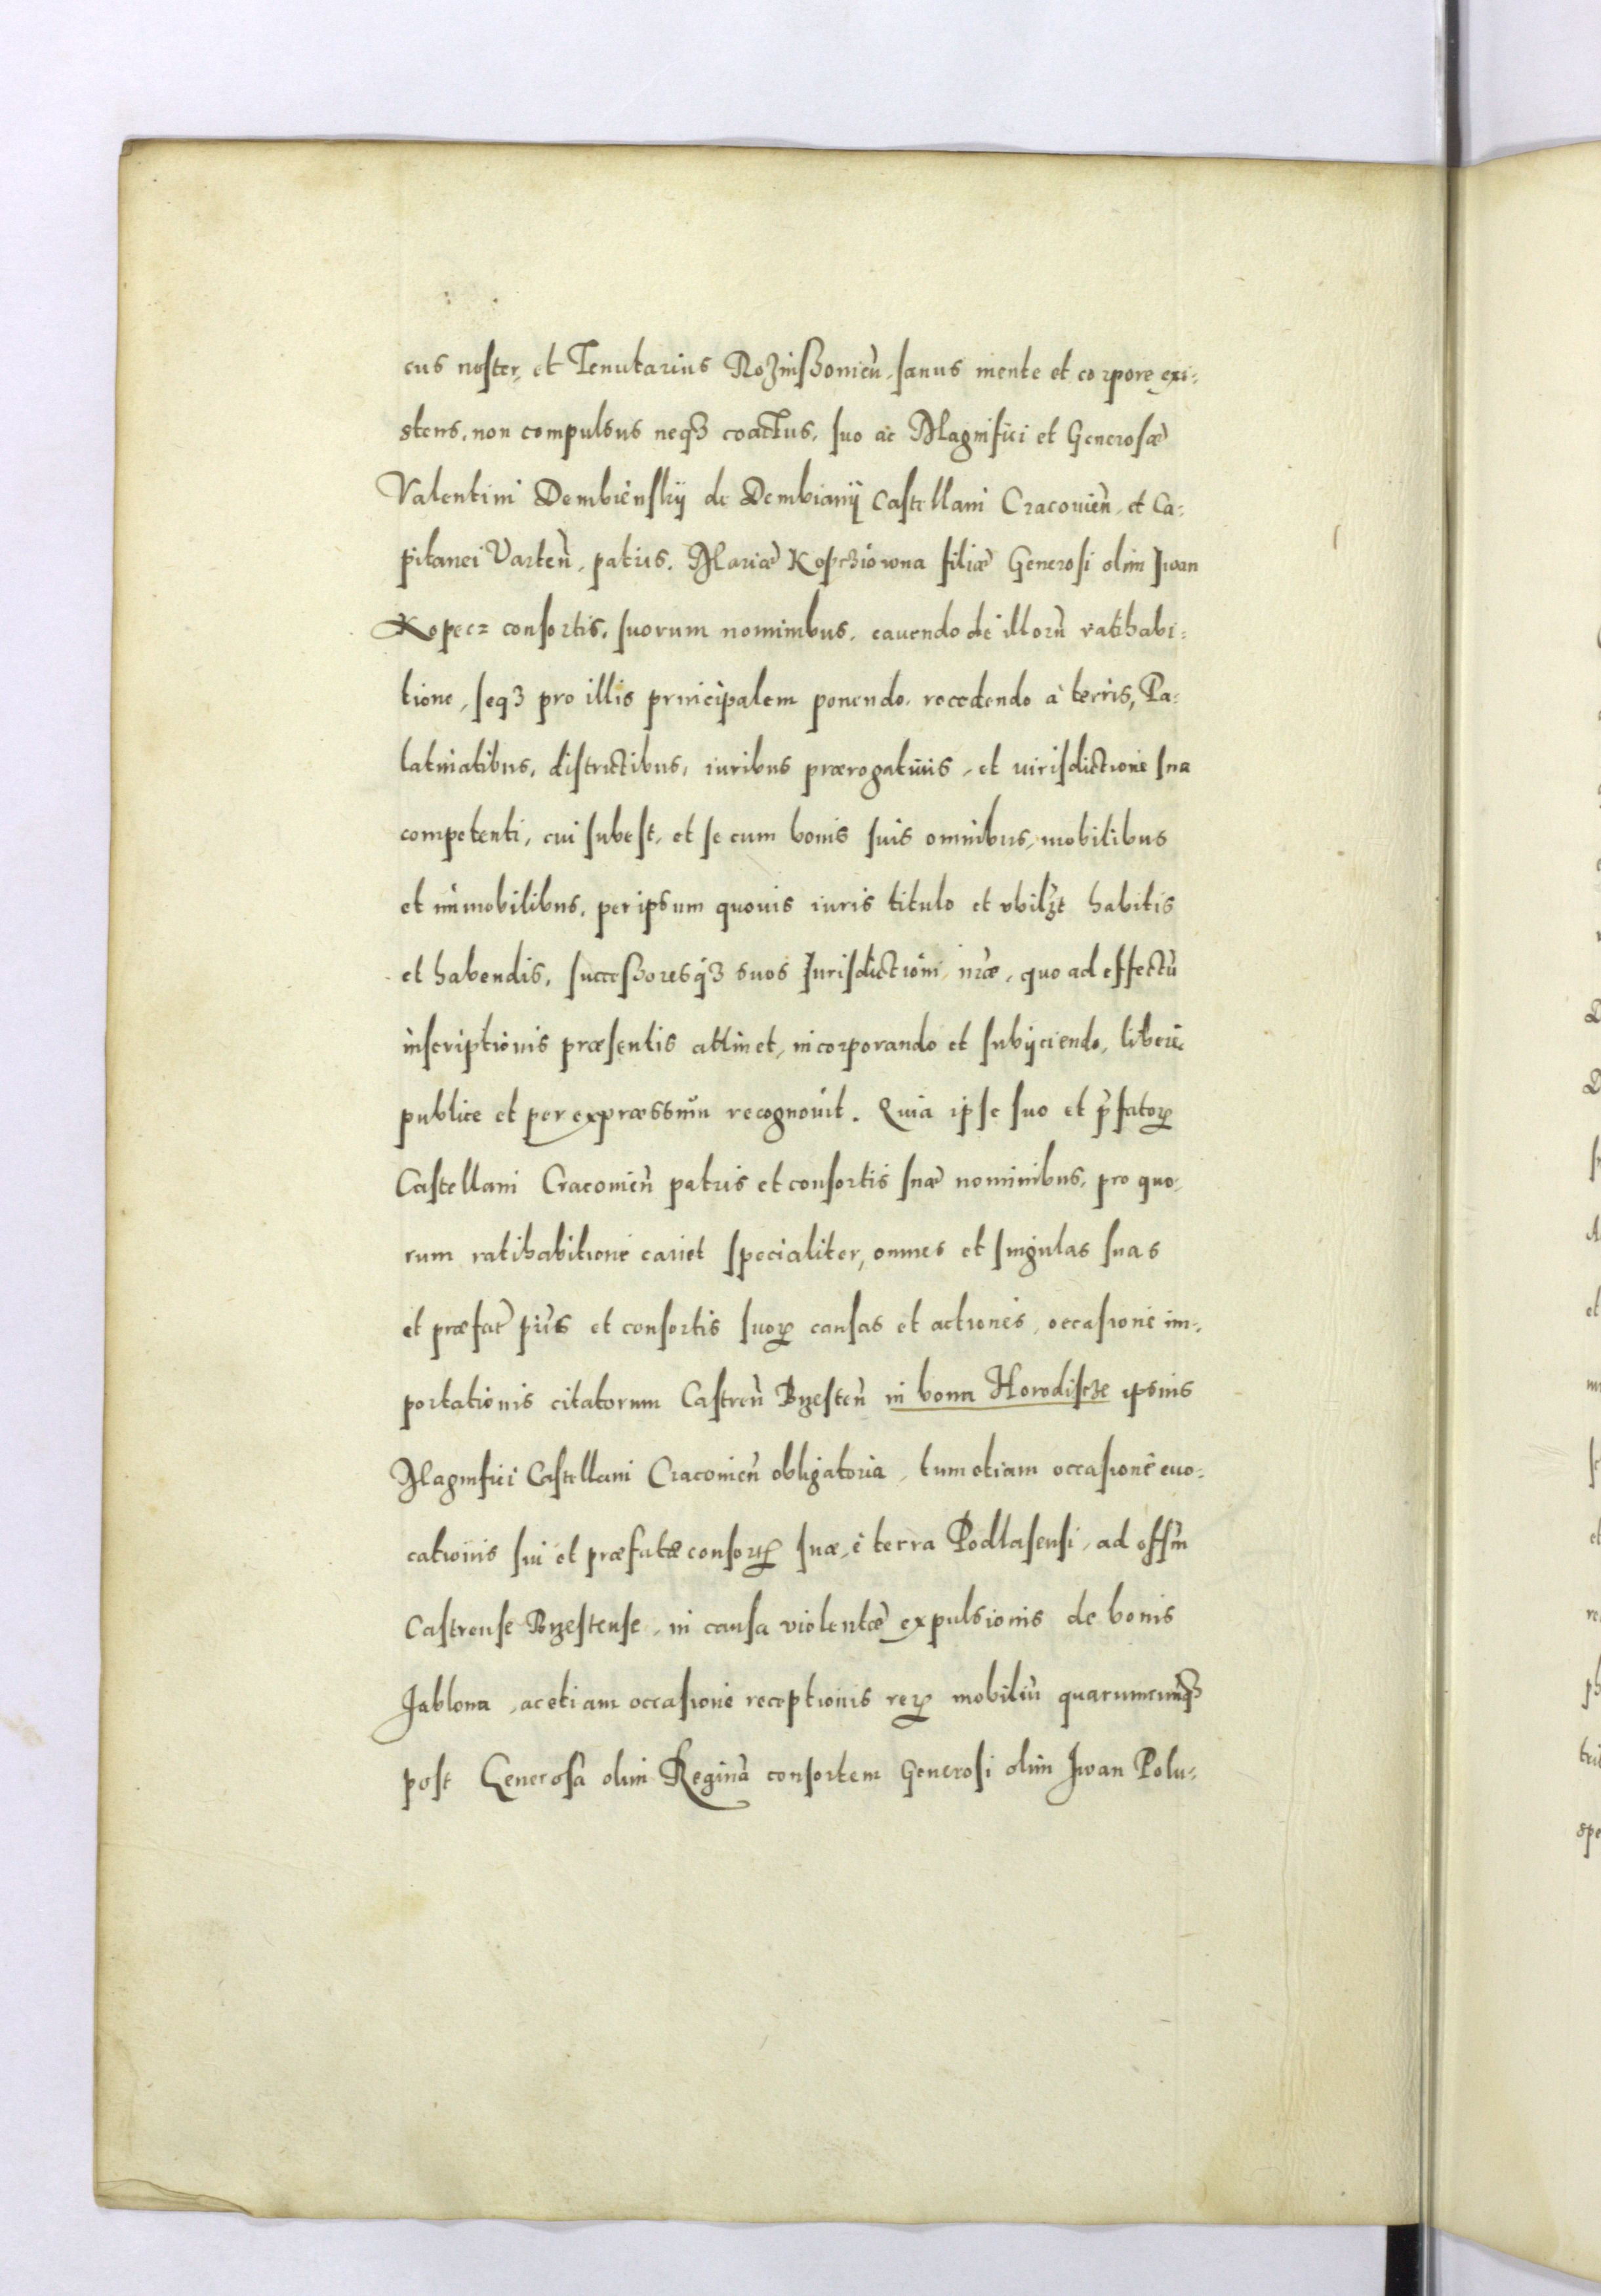 cus noster, et Tenutarius Rozniszoviеn̄, sanus mente et corpore exi:
stens, non compulsus neqʒ coactus, suo ac Magnifici et Generosæ
Valentini Dembiensky de Dembiany Castellani Cracovien̄, et Ca:
pitanei Varten̄, patris, Mariæ Kopcziowna filiæ Generosi olim Iwan
Kopecz consortis, suorum nominibus, cauendo de illorū ratihabi:
tione, seqʒ pro illis principalem ponendo, recedendo à terris, Pa:
latinatibus, districtibus, iuribus prærogatiuis, et iurisdictione sua
competenti, cui subest, et se cum bonis suis omnibus, mobilibus
et immobilibus, per ipsum quouis iuris titulo et vbilꝫt habitis
et habendis, successoresqʒ suos Iurisdictioni nr̄æ, quo ad effectū
inscriptionis præsentis attinet, incorporando et subijciendo, liberè
publice et per expræssum recognouit. Quia ipse suo et p̄fatoꝝ
Castellani Cracouien̄ patris et consortis suæ nominibus, pro quo:
rum ratihabitione cauet specialiter, omnes et singulas suas
et præfat̄ pr̄is et consortis suoꝝ causas et actiones, occasione im:
portationis citatorum Castren̄ Brzesten̄ in bona Horodiscze ipsius
Magnifici Castellani Cracouien̄ obligatoria, tum etiam occasione euo:
cationis sui et præfatæ consortꝭ suæ, è terra Podlasensi, ad offm̄
Castrense Brzestense, in causa violentæ expulsionis de bonis
Jablona, ac etiam occasione receptionis reꝝ mobiliū quarumcunqʒ
post Generosā olim Reginā consortem Generosi olim Iwan Polu: